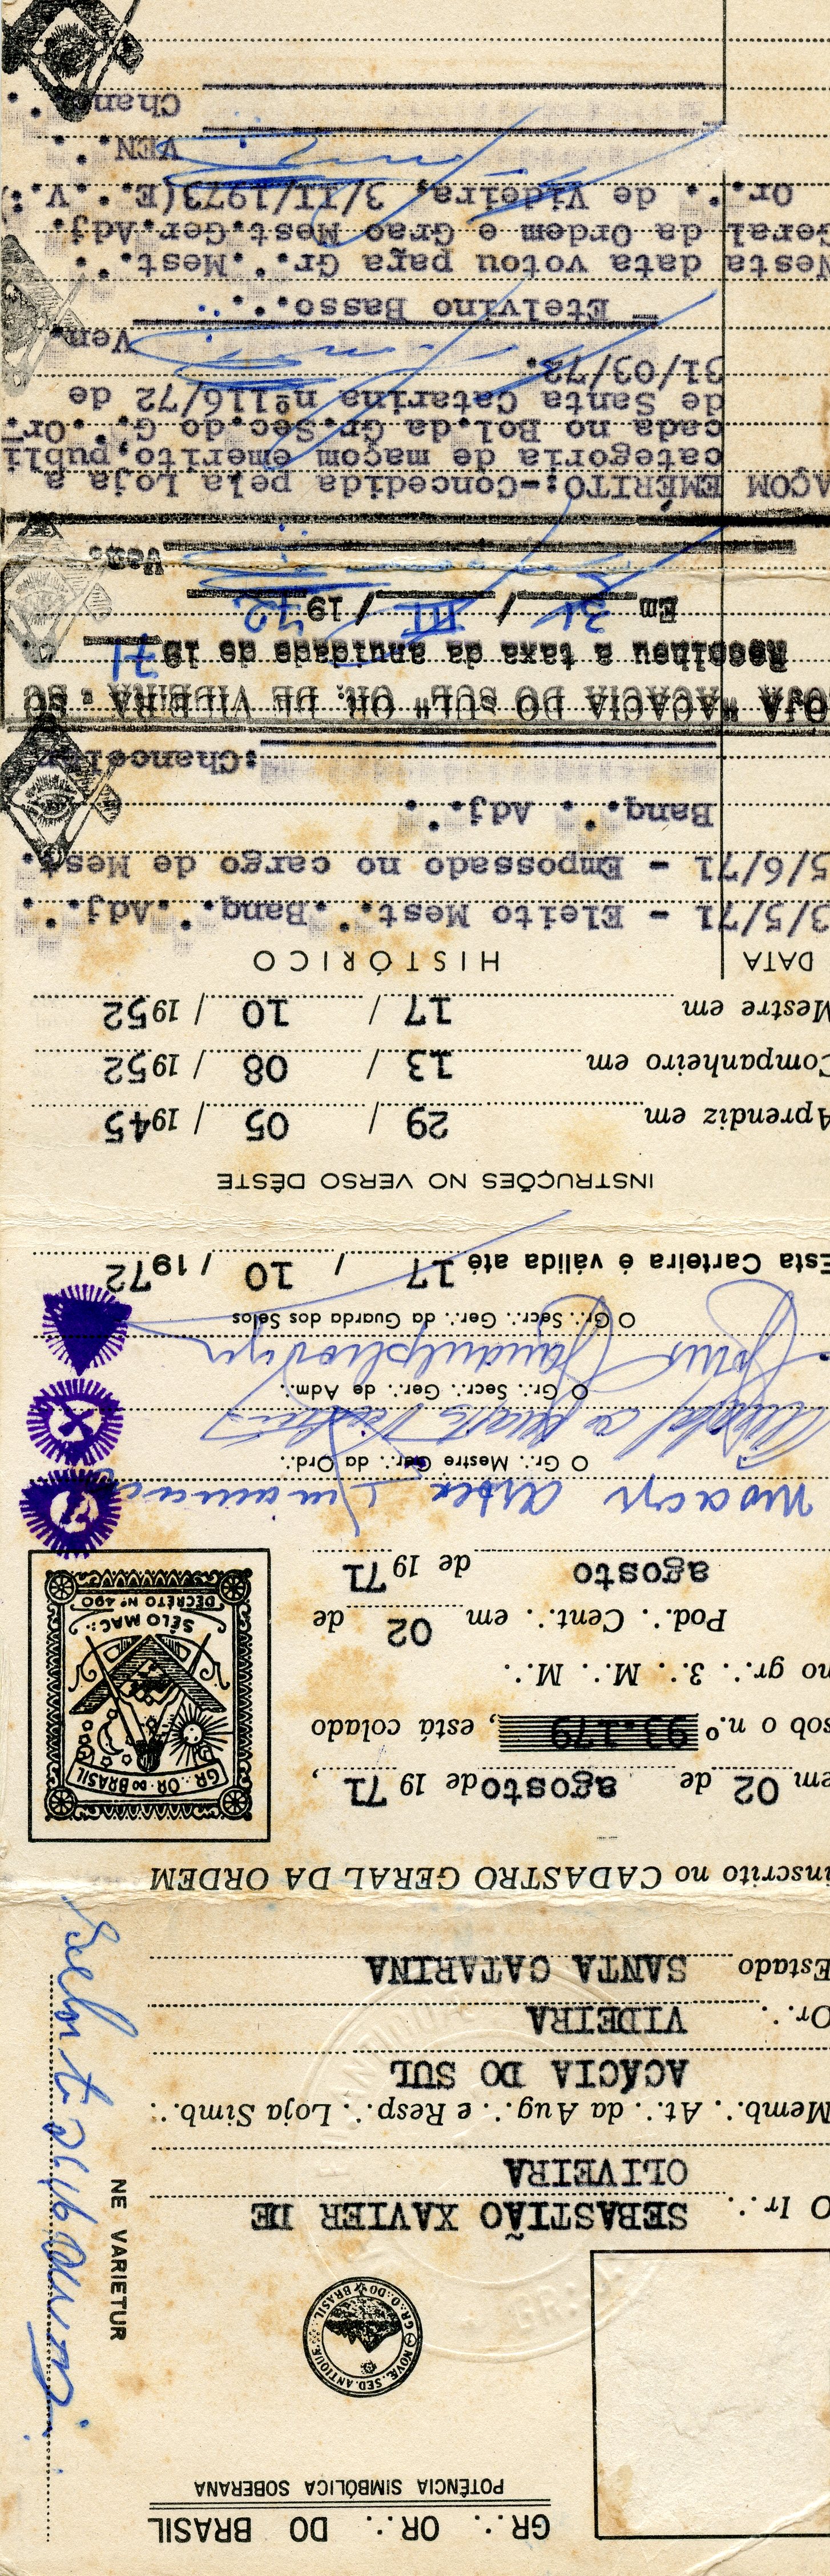 GR.·. OR.·. DO BRASIL
POTÊNCIA SIMBÓLICA SOBERANA
GR.·. O.·. DO BRASIL
NOVÆ. SED. ANTIQUÆ
NE VARIETUR
O Ir.·. SEBASTIÃO XAVIER DE
OLIVEIRA
Memb.·. At.·. da Aug.·. e Resp.·. Loja Simb.·.
ACÁCIA DO SUL
Or.·. VIDEIRA
Estado SANTA CATARINA
inscrito no CADASTRO GERAL DA ORDEM
em 02 de agosto de 1971,
sob o n.º 93.179, está colado
no gr.·. 3.·. M.·. M.·.
Pod.·. Cent.·. em 02 de
agosto de 1971
GR.·. OR. DO BRASIL
SÊLO MAÇ.·.
DECRETO Nº 490
Moacyr Arbex Dinamarco
O Gr.·. Mestre Ger.·. da Ord.·.
O Gr.·. Secr.·. Ger.·. de Adm.·.
O Gr.·. Secr.·. Ger.·. da Guarda dos Selos
Esta Carteira é válida até 17 / 10 / 1972
INSTRUÇÕES NO VERSO DÊSTE
Aprendiz em 29 / 05 / 1945
Companheiro em 13 / 08 / 1952
Mestre em 17 / 10 / 1952
DATA HISTÓRICO
3/5/71 - Eleito Mest.·. Banq.·. Adj.·.
5/6/71 - Empossado no cargo de Mest.
Banq.·. Adj.·.
Chanceler:
OJA "ACACIA DO SUL" OR. DE VIDEIRA - SC
Recolheu a taxa da anuidade de 1971
Em 31 / III / 1972
Ven.·.
AÇOM EMÉRITO:-Concedida pela Loja a
categoria de maçom emerito,publi
cada no Bol.da Gr.Sec.do G.·.Or.
de Santa Catarina nº116/72 de
31/03/72.
Ven
- Etelvino Basso.·.
Nesta data votou para Gr.·. Mest.·.
Geral da Ordem e Grao Mest.Ger.Adj.
Or.·. de Videira, 3/II/1973(E.·. V.·.)
VEN.·.
Chanc.·.